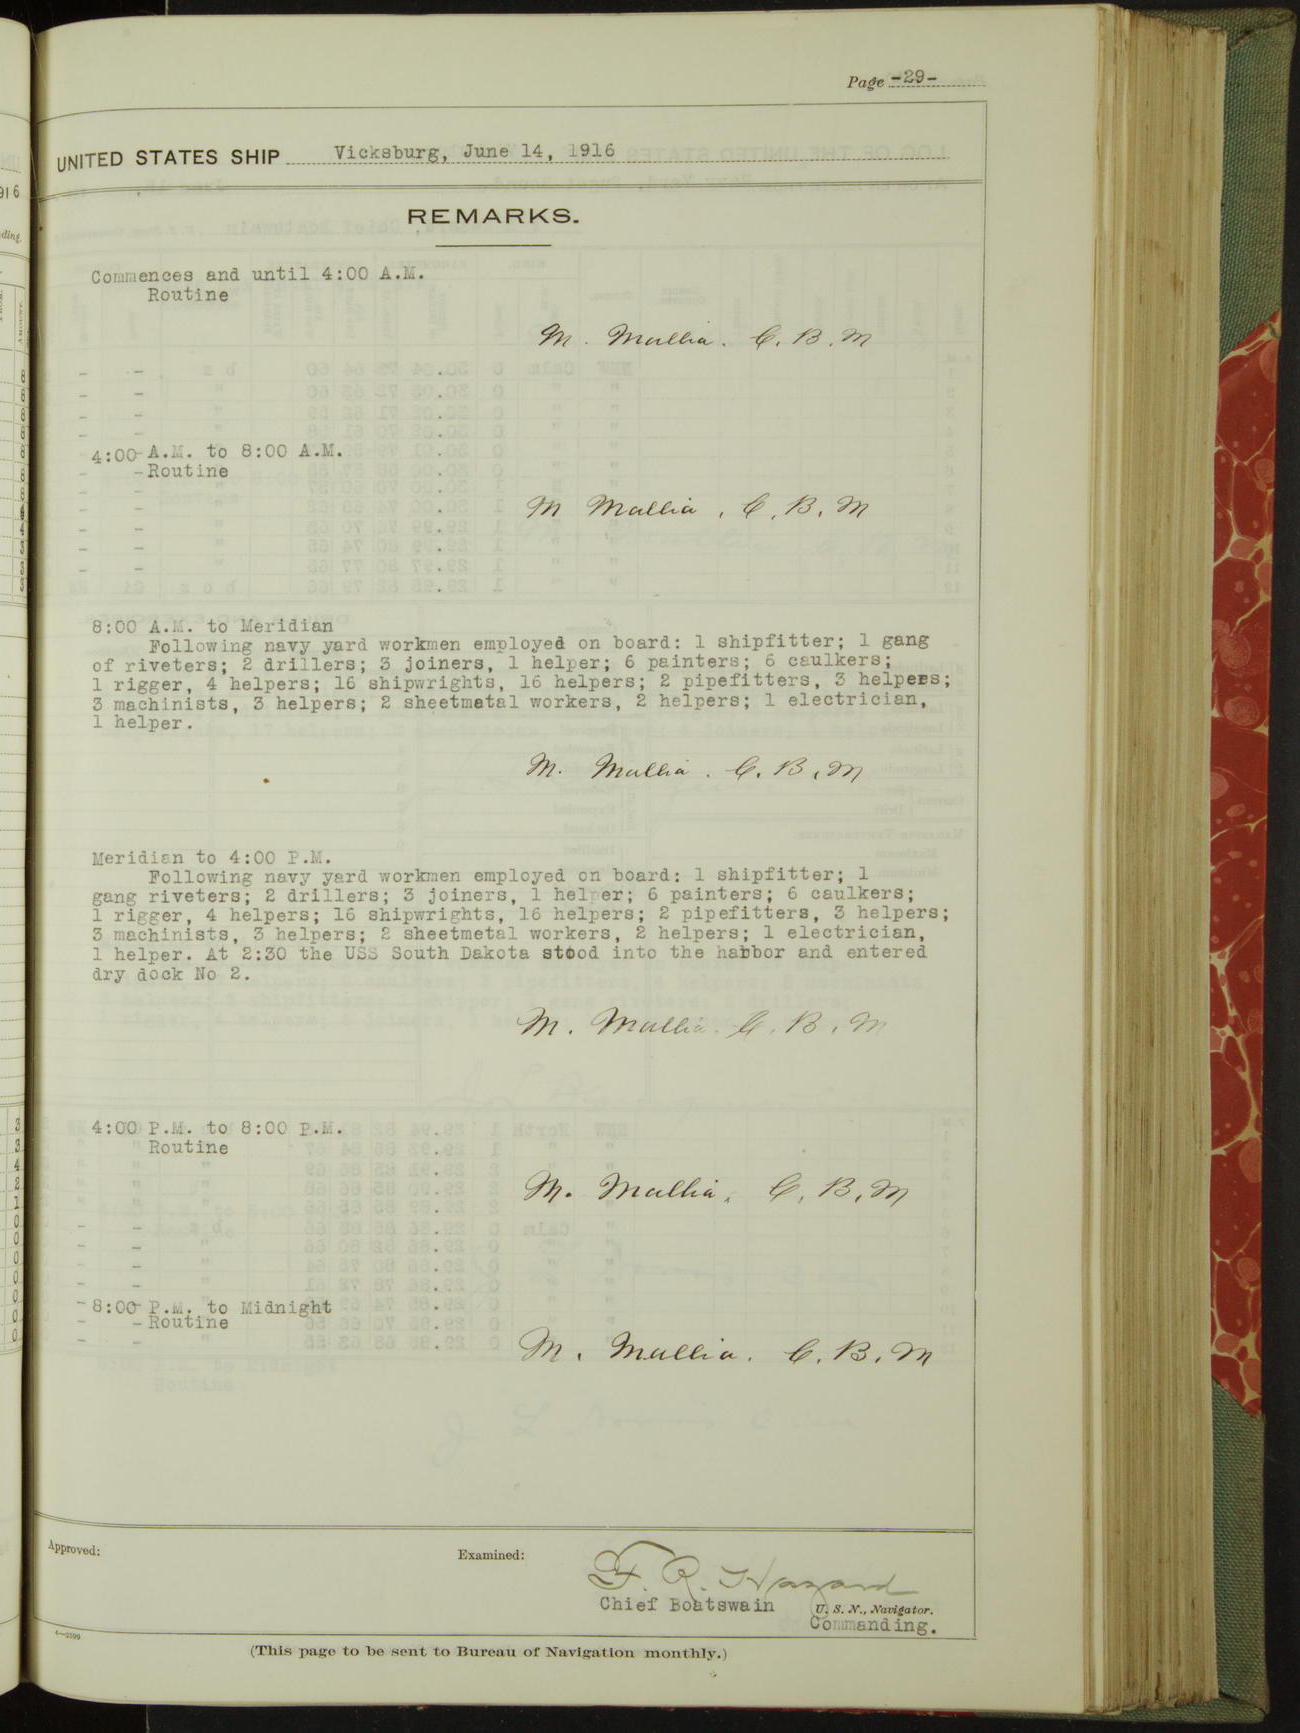 Page -29-
UNITED STATES SHIP Vicksburg, June 14, 1916
REMARKS.
Commences and until 4:00 A.M.
Routine
M. Mallia. C. B. M
4:00 A.M. to 8:00 A.M.
Routine
M Mallia. C. B. M
8:00 A.M. to Meridian
Following navy yard workmen employed on board: 1 shipfitter; 1 gang
of riveters; 2 drillers; 3 joiners, 1 helper; 6 painters; 6 caulkers;
1 rigger, 4 helpers; 16 shipwrights, 16 helpers; 2 pipefitters, 3 helpers;
3 machinists, 3 helpers; 2 sheetmetal workers, 2 helpers; 1 electrician,
1 helper.
M. Mallia. C. B. M
Meridian to 4:00 P.M.
Following navy yard workmen employed on board: 1 shipfitter; 1
gang riveters; 2 drillers; 3 joiners, 1 helper; 6 painters; 6 caulkers;
1 rigger, 4 helpers; 16 shipwrights, 16 helpers; 2 pipefitters, 3 helpers;
3 machinists, 3 helpers; 2 sheetmetal workers, 2 helpers; 1 electrician,
1 helper. At 2:30 the USS South Dakota stood into the harbor and entered
dry dock No 2.
M. Mallia. C. B. M
4:00 P.M. to 8:00 P.M.
Routine
M. Mallia. C. B. M
8:00 P.M. to Midnight
Routine
M. Mallia. C. B. M
Approved:
Examined:
F. R. Hazard
Chief Boatswain U. S. N., Navigator.
Commanding.
(This page to be sent to Bureau of Navigation monthly.)